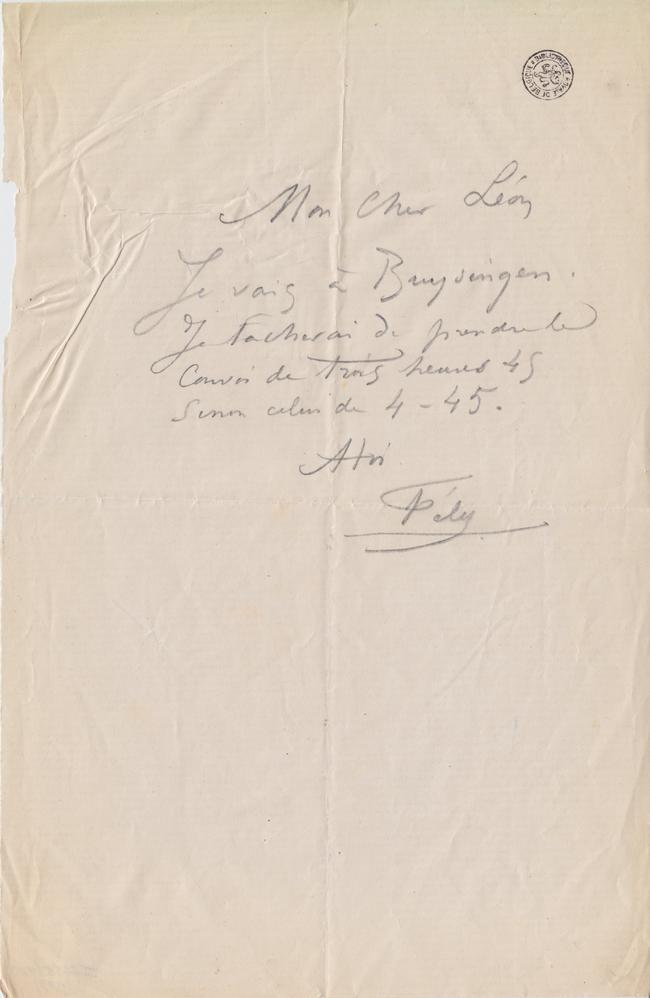 BIBLIOTHEQUE ROYALE DE BELGIQUE
Mon Cher Léon
Je vais à Buysingen.
Je tacherai de prendre le
Convoi de trois heures 45
Sinon celui de 4-45.
A toi
Fély